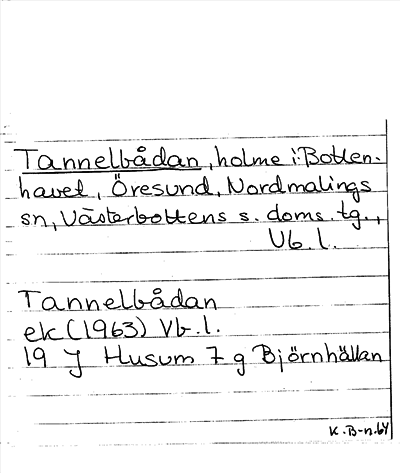 Tannelbådan, holme i Botten-
havet, Öresund, Nordmalings
sn, Västerbottens s. doms. tg.,
Vb. l.
Tannelbådan
ek (1963) Vb. l.
19 J Husum 7 g Björnhällan
K. B-n. 64